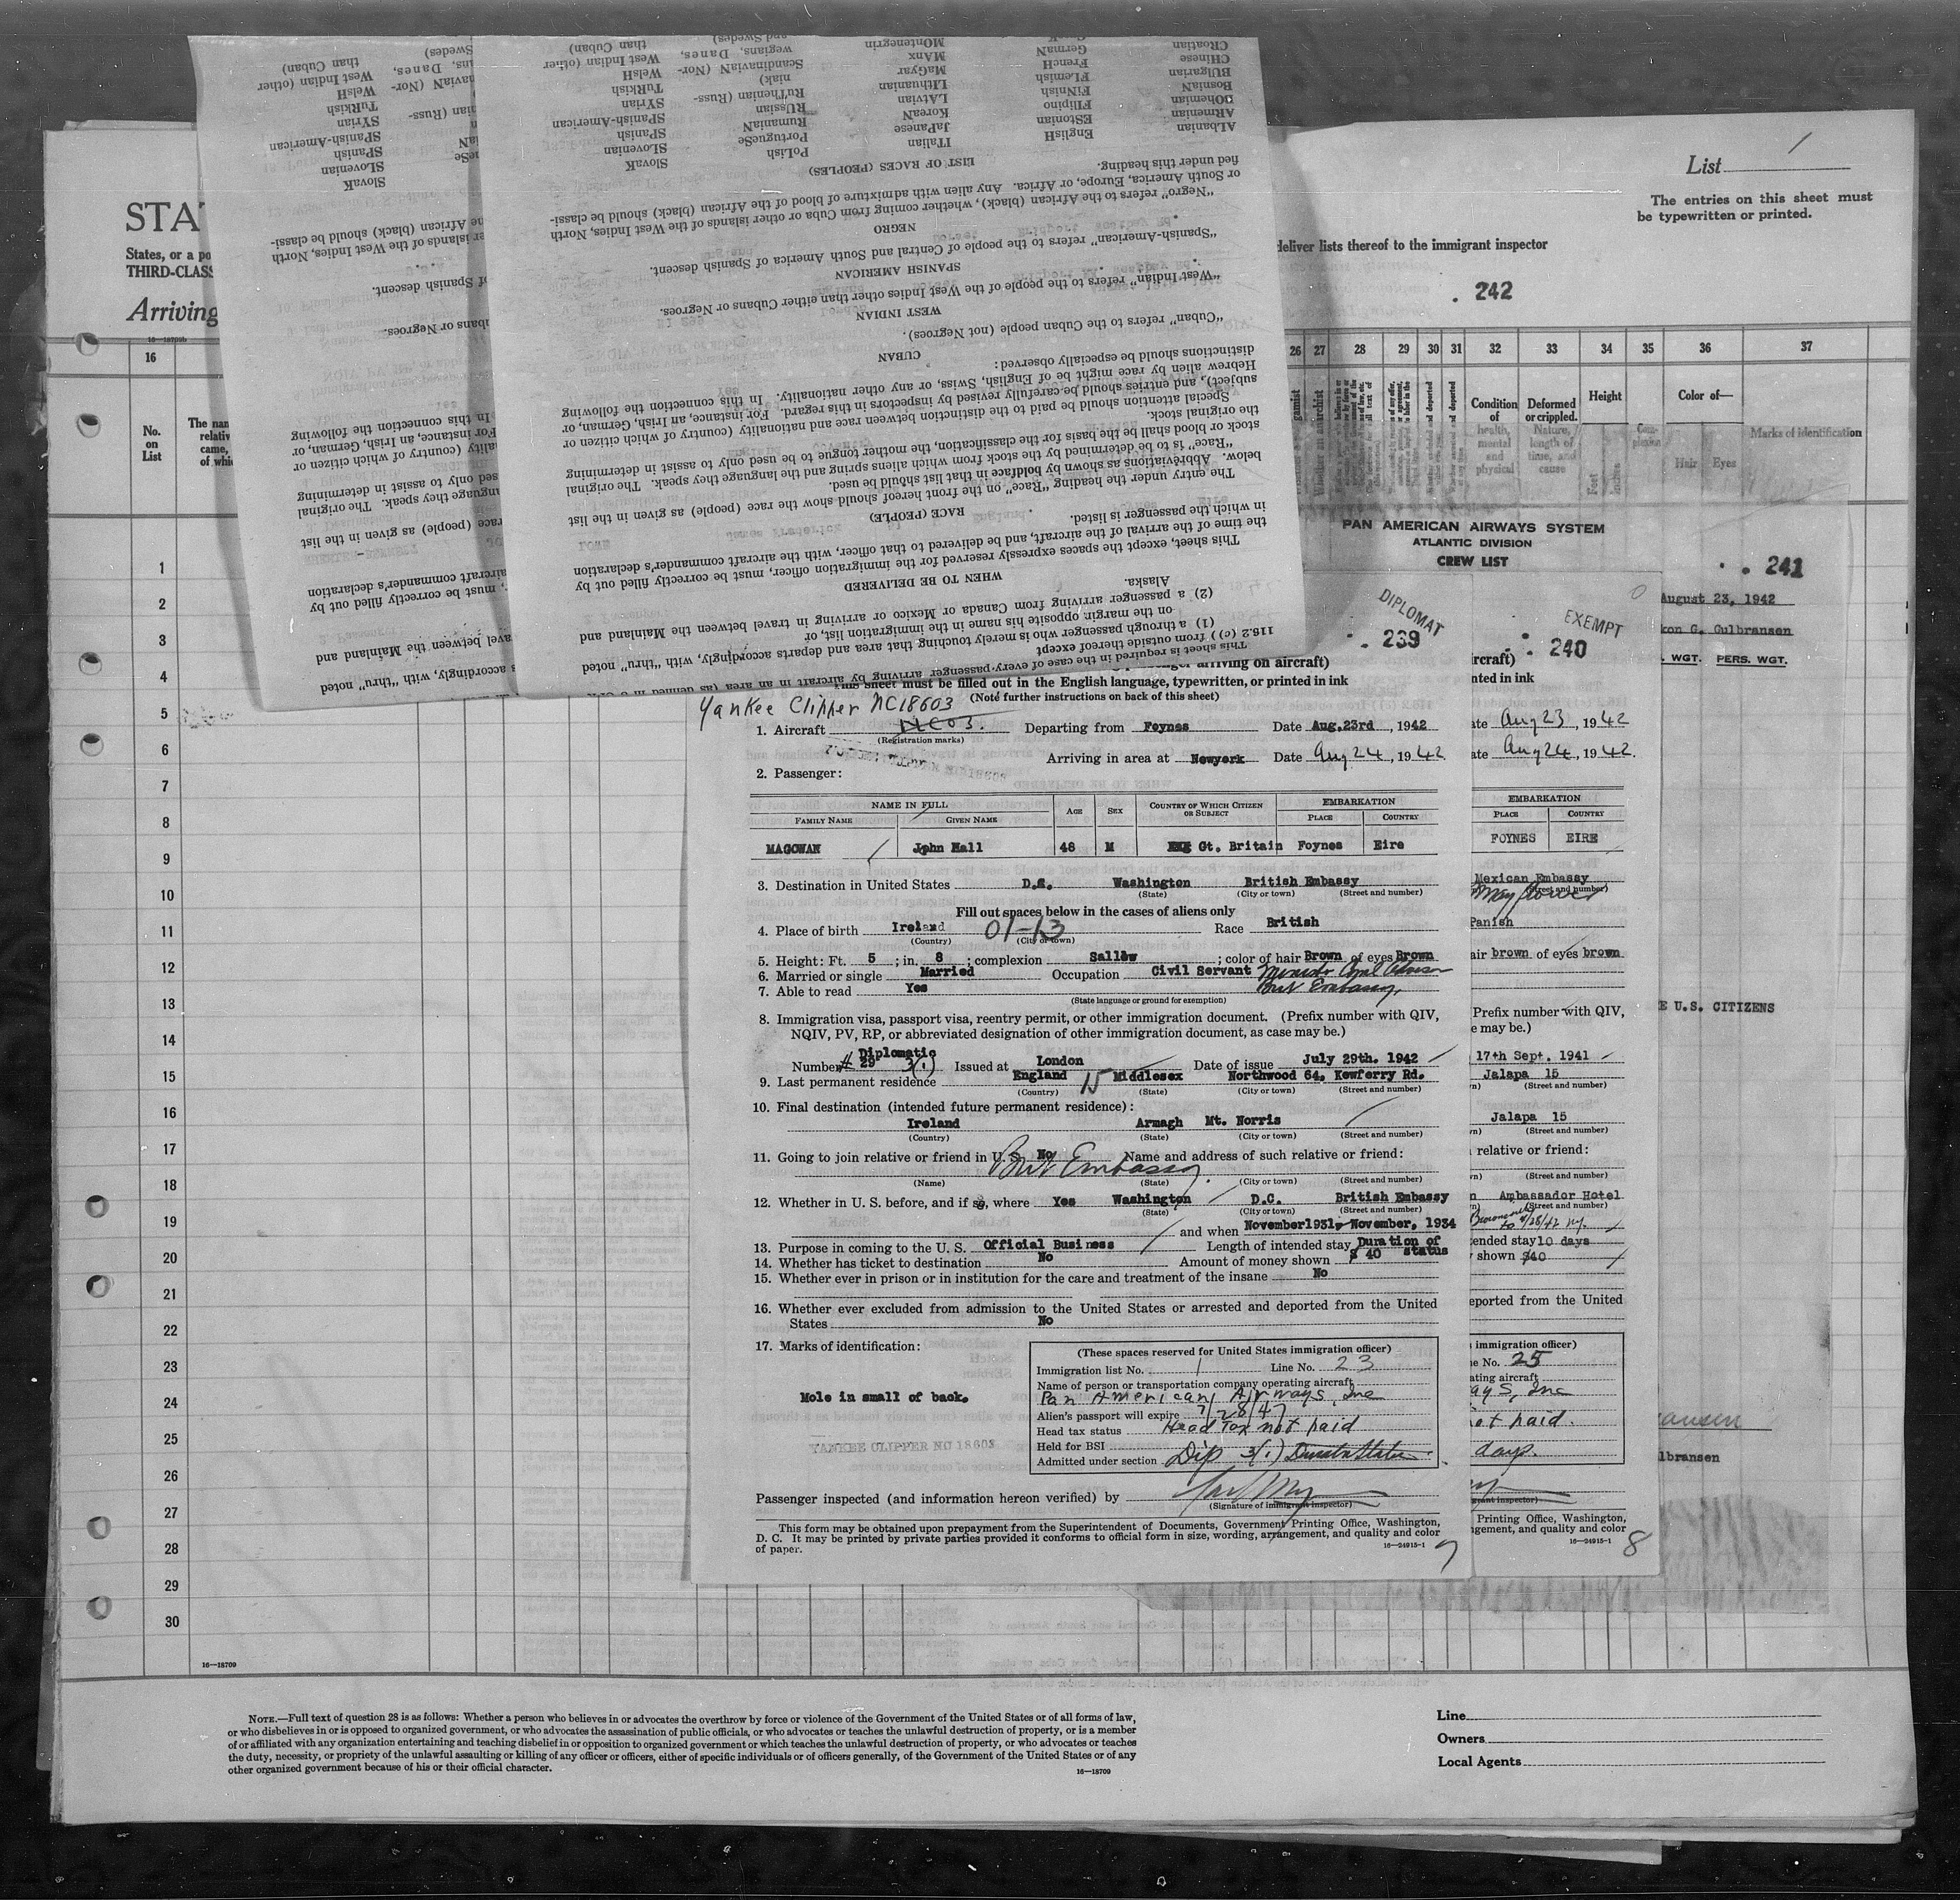 STA
States, or a po
THIRD-CLASS
Arriving
16—18709b
16
No.
on
List
The nam
relativ
came,
of whi
1
2
3
4
5
6
7
8
9
10
11
12
13
14
15
16
17
18
19
20
21
22
23
24
25
26
27
28
29
30
16—18709
List 1
The entries on this sheet must
be typewritten or printed.
deliver lists thereof to the immigrant inspector
242
26 27 28 29 30 31 32 33 34 35 36 37
Condition
of
health,
mental
and
physical
Deformed
or crippled.
Nature,
length of
time, and
cause
Height
Feet
Inches
Com-
plexion
Color of—
Hair Eyes
Marks of identification
This sheet is required in the case of every passenger arriving by aircraft in an area (as defined in
116.2 (c)) from outside thereof except
(1) a through passenger who is merely touching that area and departs accordingly, with "thru" noted
on the margin opposite his name in the immigration list, or
(2) a passenger arriving from Canada or Mexico or arriving in travel between the Mainland and
Alaska.
WHEN TO BE DELIVERED
This sheet, except the spaces expressly reserved for the immigration officer, must be correctly filled out by
the time of the arrival of the aircraft, and be delivered to that officer, with the aircraft commander's declaration
in which the passenger is listed.
RACE (PEOPLE)
The entry under the heading "Race" on the front hereof should show the race (people) as given in the list
below. Abbreviations as shown by boldface in that list should be used.
"Race" is to be determined by the stock from which aliens spring and the language they speak. The original
stock or blood shall be the basis for the classification, the mother tongue to be used only to assist in determining
the original stock.
Special attention should be paid to the distinction between race and nationality (country of which citizen or
subject), and entries should be carefully revised by inspectors in this regard. For instance, an Irish, German, or
Hebrew alien by race might be of English, Swiss, or any other nationality. In this connection the following
distinctions should be especially observed:
CUBAN
"Cuban" refers to the Cuban people (not Negroes).
WEST INDIAN
"West Indian" refers to the people of the West Indies other than either Cubans or Negroes.
SPANISH AMERICAN
"Spanish-American" refers to the people of Central and South America of Spanish descent.
NEGRO
"Negro" refers to the African (black), whether coming from Cuba or other islands of the West Indies, North
or South America, Europe, or Africa. Any alien with admixture of blood of the African (black) should be classi-
fied under this heading.
LIST OF RACES (PEOPLES)
Albanian EnglisH ITalian PoLish SlovaK
ARmenian EStonian JaPanese PortugueSe SLovenian
BOhemian FIlipino KOrean RumaniaN SPanish
BosniaN FiNnish LAtvian RUssian SPanish-American
BUlgarian FLemish LIthuanian RuThenian (Russ- SYrian
CHinese FrencH MaGyar niak) TuRkish
CRoatian GermaN MAnx ScandinaviaN (Nor- WelsH
MOntenegrin wegians, Danes, West Indian (other
and Swedes) than Cuban)
PAN AMERICAN AIRWAYS SYSTEM
ATLANTIC DIVISION
CREW LIST
241
August 23, 1942
kon G. Gulbransen
. WGT. PERS. WGT.
E U.S. CITIZENS
lbransen
DIPLOMAT
239
passenger arriving on aircraft)
sheet must be filled out in the English language, typewritten, or printed in ink
(Note further instructions on back of this sheet)
Yankee Clipper NC18603
1. Aircraft NC03. Departing from Foynes Date Aug.23rd, 1942
(Registration marks)
Arriving in area at Newyork Date Aug 24, 1942
2. Passenger:
NAME IN FULL AGE SEX COUNTRY OF WHICH CITIZEN OR SUBJECT EMBARKATION
FAMILY NAME GIVEN NAME PLACE COUNTRY
MAGOWAN John Hall 48 M Gt. Britain Foynes Eire
3. Destination in United States D.C. Washington British Embassy
(State) (City or town) (Street and number)
Fill out spaces below in the cases of aliens only
4. Place of birth Ireland 01-13 Race British
(Country) (City or town)
5. Height: Ft. 5; in. 8; complexion Sallow; color of hair Brown of eyes Brown
6. Married or single Married Occupation Civil Servant
7. Able to read Yes Brit Embassy,
(State language or ground for exemption)
8. Immigration visa, passport visa, reentry permit, or other immigration document. (Prefix number with QIV,
NQIV, PV, RP, or abbreviated designation of other immigration document, as case may be.)
Diplomatic
Number # 29 3(1) Issued at London Date of issue July 29th. 1942
9. Last permanent residence England 15 Middlesex Northwood 64, Kewferry Rd.
(Country) (State) (City or town) (Street and number)
10. Final destination (intended future permanent residence):
Ireland Armagh Mt. Norris
(Country) (State) (City or town) (Street and number)
11. Going to join relative or friend in U. S. No Name and address of such relative or friend:
Brit Embassy.
(Name) (State) (City or town) (Street and number)
12. Whether in U. S. before, and if so, where Yes Washington D.C. British Embassy
(State) (City or town) (Street and number)
and when November1931, November, 1934
13. Purpose in coming to the U. S. Official Business Length of intended stay Duration of status
14. Whether has ticket to destination No Amount of money shown $ 40
15. Whether ever in prison or in institution for the care and treatment of the insane No
16. Whether ever excluded from admission to the United States or arrested and deported from the United
States No
17. Marks of identification:
Mole in small of back.
YANKEE CLIPPER NC 18603
(These spaces reserved for United States immigration officer)
Immigration list No. 1 Line No. 23
Name of person or transportation company operating aircraft
Pan American Airways, Inc
Alien's passport will expire 7/28/47
Head tax status Head Tax not paid
Held for BSI
Admitted under section Dip 3(1)
Passenger inspected (and information hereon verified) by
(Signature of immigrant inspector)
This form may be obtained upon prepayment from the Superintendent of Documents, Government Printing Office, Washington,
D. C. It may be printed by private parties provided it conforms to official form in size, wording, arrangement, and quality and color
of paper.
16—24915-1
7
EXEMPT
240
ircraft)
nted in ink
ate Aug 23, 1942
ate Aug 24, 1942.
EMBARKATION
PLACE COUNTRY
FOYNES EIRE
Mexican Embassy
(Street and number)
Mayflower
Panish
air brown of eyes brown
Prefix number with QIV,
e may be.)
17th Sept. 1941
Jalapa 15
(Street and number)
Jalapa 15
(Street and number)
relative or friend:
(Street and number)
Ambassador Hotel
(Street and number)
ended stay 10 days
shown $40
eported from the United
immigration officer)
e No. 25
ating aircraft
ays, Inc
ot paid.
days.
Printing Office, Washington,
ngement, and quality and color
16—24915-1
8
NOTE.—Full text of question 28 is as follows: Whether a person who believes in or advocates the overthrow by force or violence of the Government of the United States or of all forms of law,
or who disbelieves in or is opposed to organized government, or who advocates the assassination of public officials, or who advocates or teaches the unlawful destruction of property, or is a member
of or affiliated with any organization entertaining and teaching disbelief in or opposition to organized government or which teaches the unlawful destruction of property, or who advocates or teaches
the duty, necessity, or propriety of the unlawful assaulting or killing of any officer or officers, either of specific individuals or of officers generally, of the Government of the United States or of any
other organized government because of his or their official character.
16—18709
Line
Owners
Local Agents